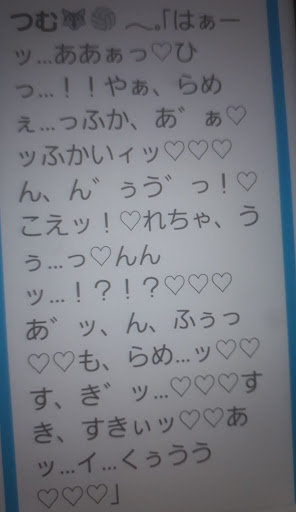 つむ🦊🏐 〜。｢はぁー
ッ…ああぁっ♡ひ
っ…！！やぁ、らめ
ぇ…っふか、あ゛ぁ♡
ッふかいィッ♡♡♡
ん、ん゛ぅう゛っ！♡
こえッ！♡れちゃ、う
ぅ…っ♡んん
ッ…！？！？♡♡♡
あ゛ッ、ん、ふぅっ
♡♡も、らめ…ッ♡♡
す、き゛ッ…♡♡♡す
き、すきぃッ♡♡あ
ッ…イ…くぅうう
♡♡♡｣